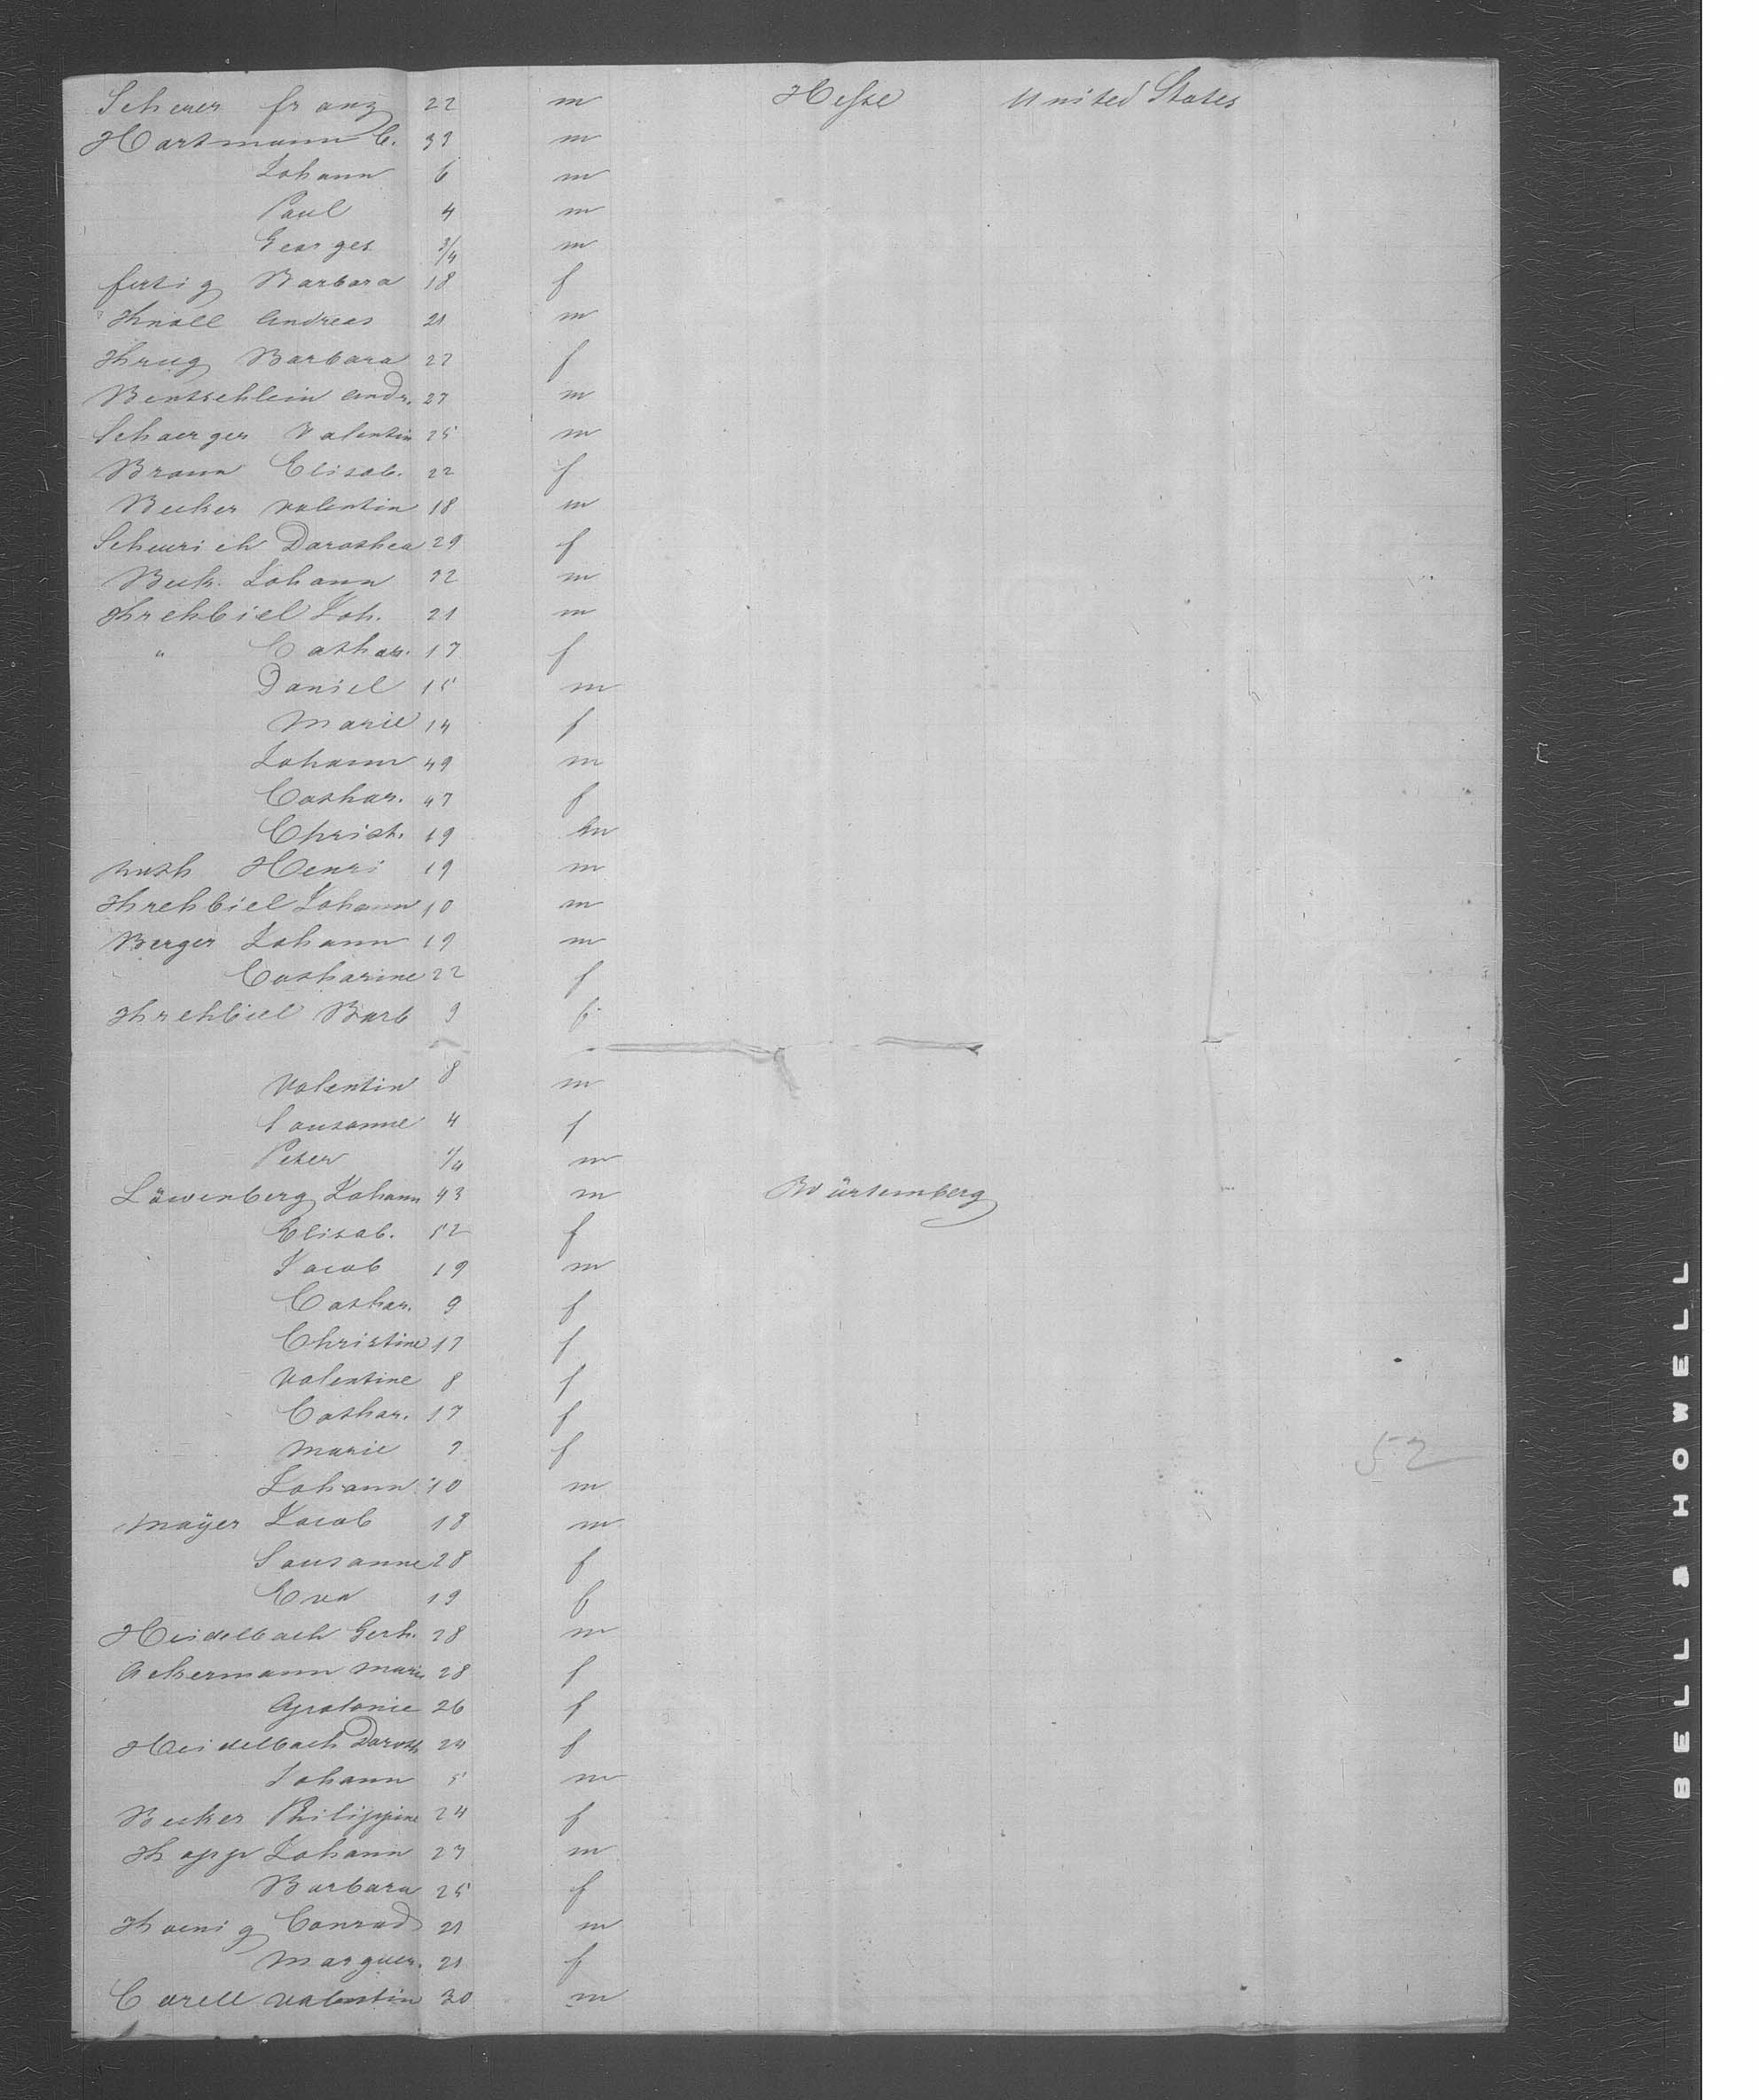 Scherer franz 22 m Hesse United States
Hartmann C. 39 m
Johann 6 m
Paul 4 m
Georges 3/4 m
fertig Barbara 18 f
Knoll Andreas 21 m
Krug Barbara 22 f
Bentschlein Andr. 27 m
Schaerger Valentin 25 m
Braun Elisab. 22 f
Becker Valentin 18 m
Scheurich Dorothea 29 f
Beck Johann 32 m
Krehbiel Joh. 21 m
" Cathar. 17 f
Daniel 15 m
Marie 14 f
Johann 49 m
Cathar. 47 f
Christ. 19 m
Henri 19 m
Krehbiel Johann 10 m
Berger Johann 19 m
Catharine 22 f
Krehbiel Barb 9 f
Valentin 8 m
Sousanne 4 f
Peter 1/4 m
Löwenberg Johann 43 m Würtemberg
Elisab. 52 f
Jacob 19 m
Cathar. 9 f
Christine 17 f
Valentine 8 f
Cathar. 17 f
Marie 9 f
52
Johann 10 m
Mayer Jacob 18 m
Sousanne 28 f
Eva 19 f
Heidelbach Gerh. 28 m
Ackermann Marie 28 f
Apolonie 26 f
Heidelbach Doroth 24 f
Johann 5 m
Becker Philippine 24 f
Kopp Johann 27 m
Barbara 25 f
Koenig Conrad 21 m
Marguer. 21 f
Carell Valentin 30 m
BELL & HOWELL